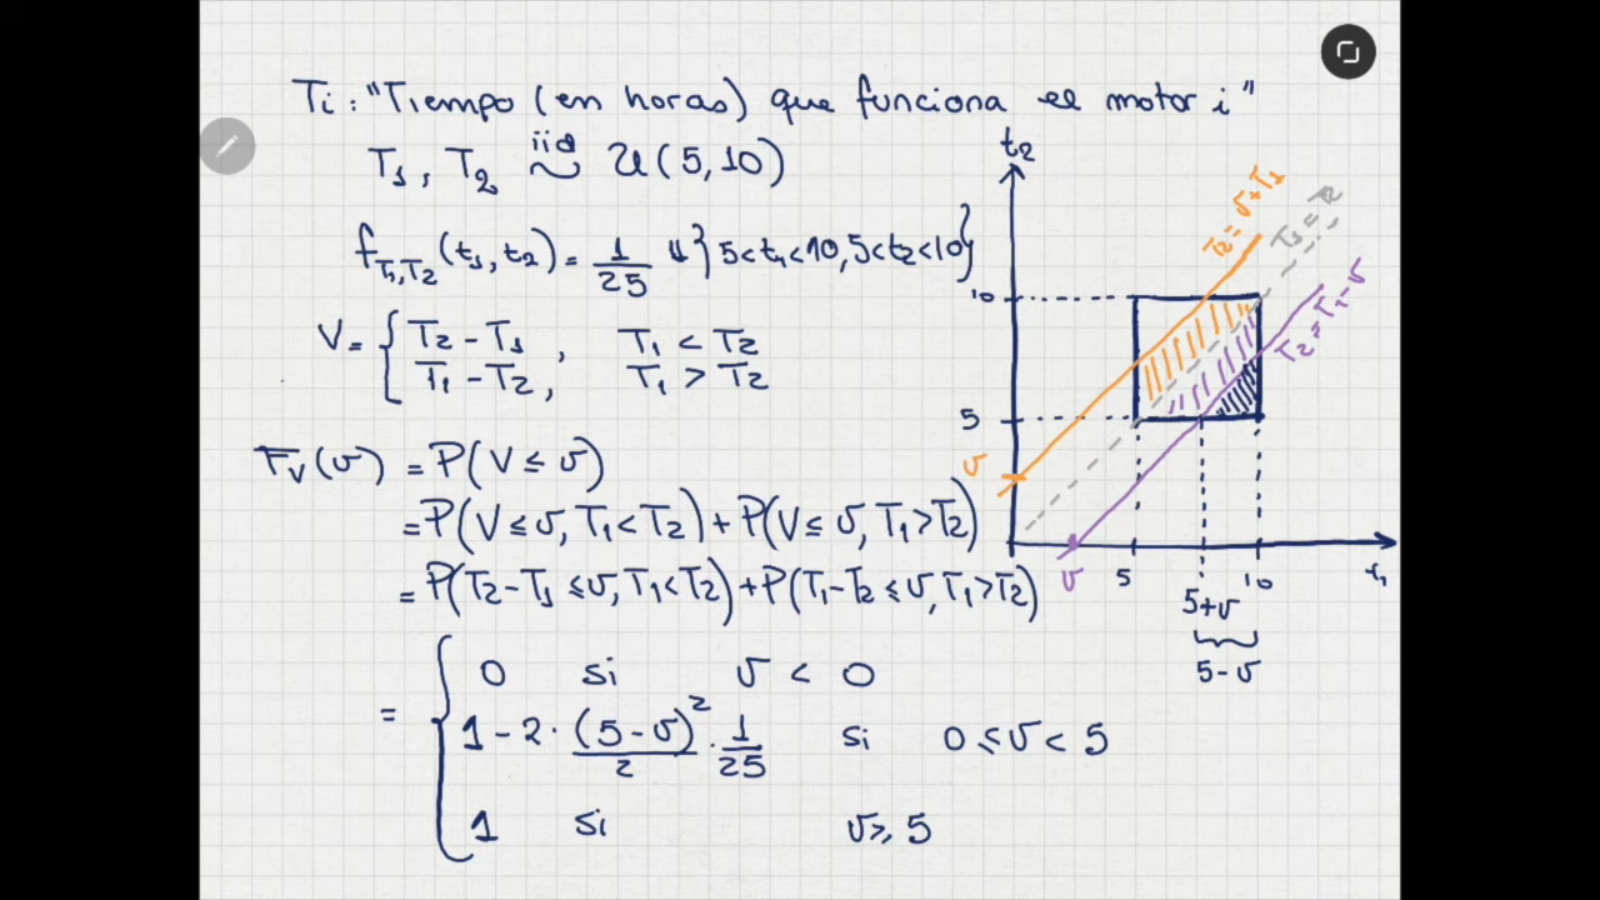 Ti: "Tiempo (en horas) que funciona el motor i"
T₁, T₂ iid ~ U(5,10)
f_{T₁,T₂}(t₁,t₂) = 1/25 𝟙{5<t₁<10, 5<t₂<10}
V = { T₂ - T₁ , T₁ < T₂
T₁ - T₂, T₁ > T₂
F_V(v) = P(V ≤ v)
= P(V ≤ v, T₁ < T₂) + P(V ≤ v, T₁ > T₂)
= P(T₂ - T₁ ≤ v, T₁ < T₂) + P(T₁ - T₂ ≤ v, T₁ > T₂)
= { 0 si v < 0
1 - 2 · (5-v)²/2 · 1/25 si 0 ≤ v < 5
1 si v ≥ 5
t₂
T₂ = v + T₁
T₁ = T₂
T₂ = T₁ - v
10
5
v
v 5 10 t₁
5+v
5-v